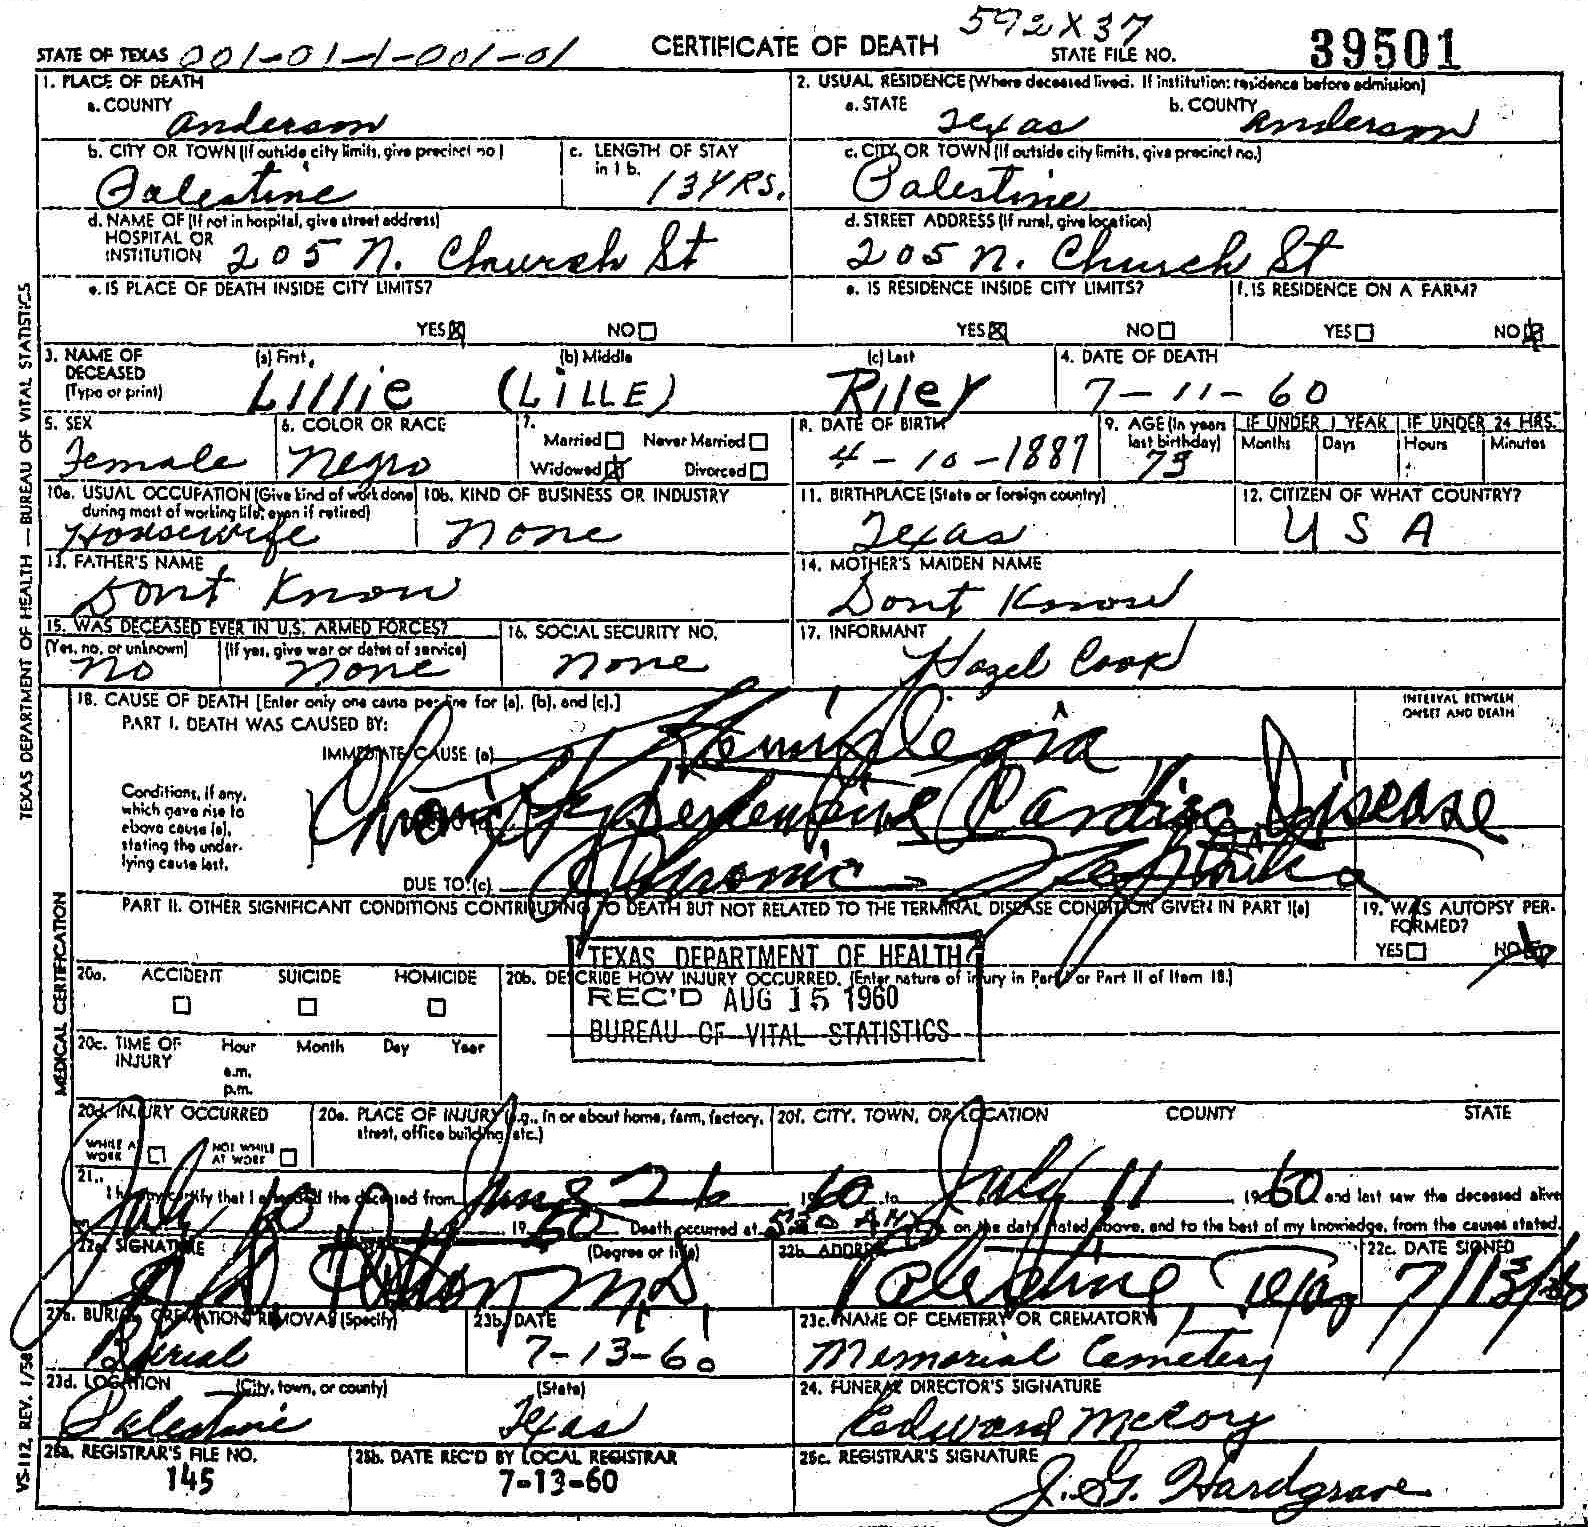 592 X 37
STATE OF TEXAS 001-01-1-001-01 CERTIFICATE OF DEATH STATE FILE NO. 39501
1. PLACE OF DEATH
a. COUNTY Anderson
2. USUAL RESIDENCE (Where deceased lived. If institution: residence before admission)
a. STATE Texas b. COUNTY Anderson
b. CITY OR TOWN (If outside city limits, give precinct no.) Palestine
c. LENGTH OF STAY in 1b. 13 YRS.
c. CITY OR TOWN (If outside city limits, give precinct no.) Palestine
d. NAME OF (If not in hospital, give street address) HOSPITAL OR INSTITUTION 205 N. Church St
d. STREET ADDRESS (If rural, give location) 205 N. Church St
e. IS PLACE OF DEATH INSIDE CITY LIMITS?
YES NO
e. IS RESIDENCE INSIDE CITY LIMITS?
YES NO
f. IS RESIDENCE ON A FARM?
YES NO
3. NAME OF DECEASED (Type or print)
(a) First (b) Middle (c) Last
Lillie (LILLE) Riley
4. DATE OF DEATH
7-11-60
5. SEX Female
6. COLOR OR RACE Negro
7. Married Never Married
Widowed Divorced
8. DATE OF BIRTH 4-10-1887
9. AGE (In years last birthday) 73
IF UNDER 1 YEAR Months Days
IF UNDER 24 HRS. Hours Minutes
10a. USUAL OCCUPATION (Give kind of work done during most of working life, even if retired) Housewife
10b. KIND OF BUSINESS OR INDUSTRY None
11. BIRTHPLACE (State or foreign country) Texas
12. CITIZEN OF WHAT COUNTRY? USA
13. FATHER'S NAME Dont Know
14. MOTHER'S MAIDEN NAME Dont Know
15. WAS DECEASED EVER IN U.S. ARMED FORCES?
(Yes, no, or unknown) No (If yes, give war or dates of service) None
16. SOCIAL SECURITY NO. None
17. INFORMANT Hazel Cook
18. CAUSE OF DEATH [Enter only one cause per line for (a), (b), and (c).]
PART I. DEATH WAS CAUSED BY:
IMMEDIATE CAUSE (a) Hemiplegia
INTERVAL BETWEEN ONSET AND DEATH
Conditions, if any, which gave rise to above cause (a), stating the underlying cause last.
Chronic Hypertensive Cardiac Disease
DUE TO (c) Chronic
PART II. OTHER SIGNIFICANT CONDITIONS CONTRIBUTING TO DEATH BUT NOT RELATED TO THE TERMINAL DISEASE CONDITION GIVEN IN PART I(a)
19. WAS AUTOPSY PERFORMED?
YES NO
TEXAS DEPARTMENT OF HEALTH
REC'D AUG 15 1960
BUREAU OF VITAL STATISTICS
20a. ACCIDENT SUICIDE HOMICIDE
20b. DESCRIBE HOW INJURY OCCURRED. (Enter nature of injury in Part I or Part II of Item 18.)
20c. TIME OF INJURY Hour Month Day Year
a.m.
p.m.
20d. INJURY OCCURRED
WHILE AT WORK NOT WHILE AT WORK
20e. PLACE OF INJURY (e.g., in or about home, farm, factory, street, office building, etc.)
20f. CITY, TOWN, OR LOCATION COUNTY STATE
21. I hereby certify that I attended the deceased from 1960 to July 11 1960 and last saw the deceased alive
July 10 1960 Death occurred at on the date stated above, and to the best of my knowledge, from the causes stated.
22a. SIGNATURE (Degree or title) M.D.
22b. ADDRESS Palestine, Texas
22c. DATE SIGNED 7/13/60
23a. BURIAL, CREMATION, REMOVAL (Specify) Burial
23b. DATE 7-13-60
23c. NAME OF CEMETERY OR CREMATORY Memorial Cemetery
23d. LOCATION (City, town, or county) (State)
Palestine Texas
24. FUNERAL DIRECTOR'S SIGNATURE Edward McCory
25a. REGISTRAR'S FILE NO. 145
25b. DATE REC'D BY LOCAL REGISTRAR 7-13-60
25c. REGISTRAR'S SIGNATURE J. G. Hardgrave
TEXAS DEPARTMENT OF HEALTH — BUREAU OF VITAL STATISTICS
MEDICAL CERTIFICATION
VS-112, REV. 1/58